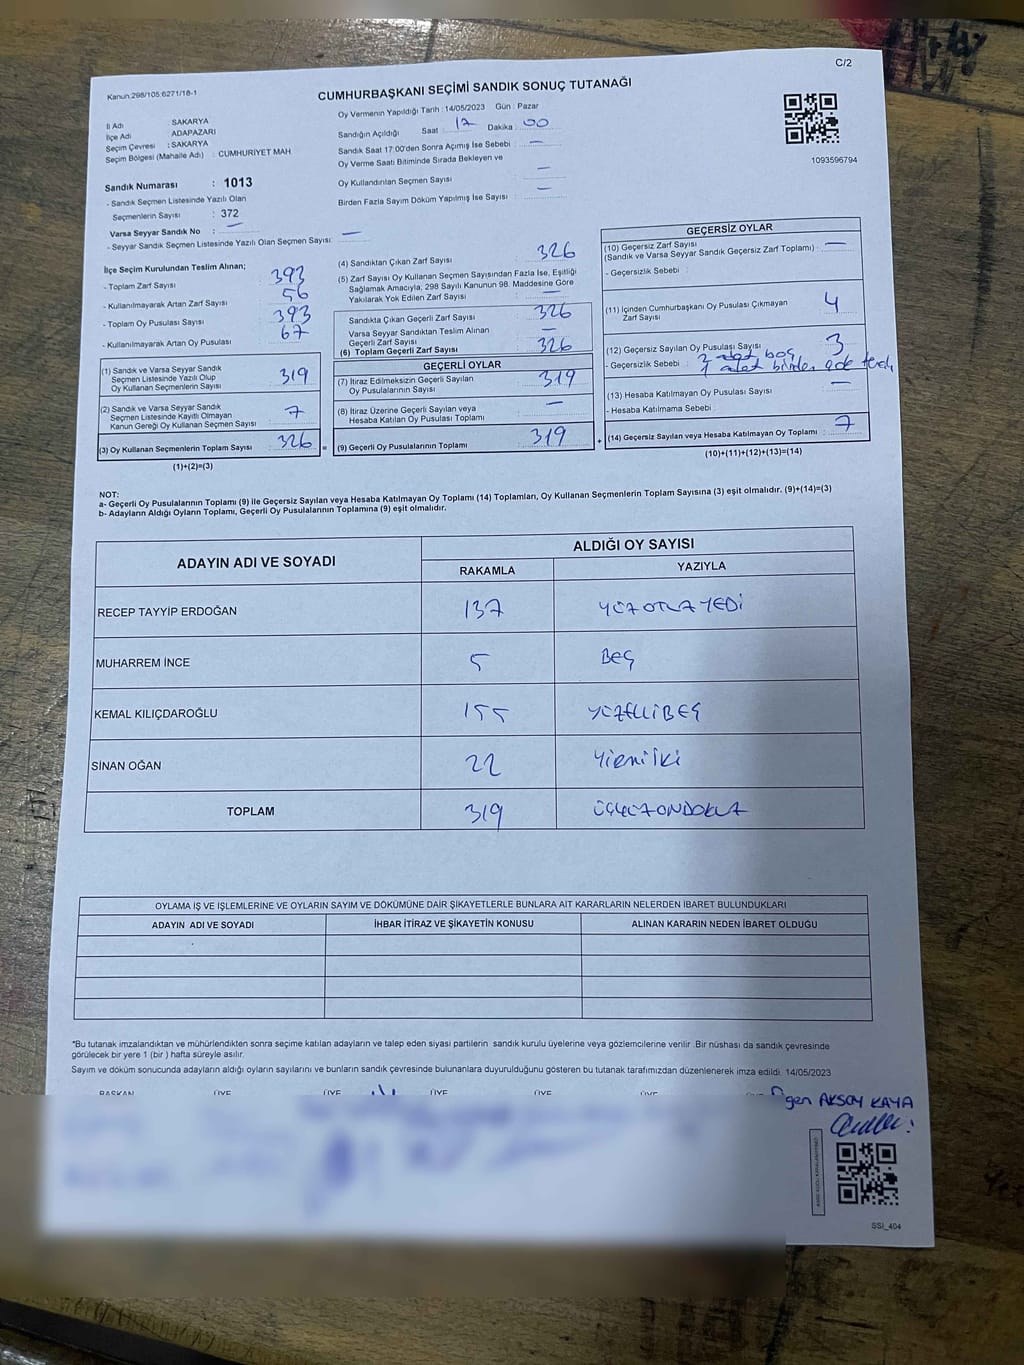 C/2
Kanun:298/105:6271/18-1
CUMHURBAŞKANI SEÇİMİ SANDIK SONUÇ TUTANAĞI
İl Adı : SAKARYA
İlçe Adı : ADAPAZARI
Seçim Çevresi : SAKARYA
Seçim Bölgesi (Mahalle Adı) : CUMHURİYET MAH
Sandık Numarası : 1013
- Sandık Seçmen Listesinde Yazılı Olan
Seçmenlerin Sayısı : 372
Varsa Seyyar Sandık No : —
- Seyyar Sandık Seçmen Listesinde Yazılı Olan Seçmen Sayısı: —
Oy Vermenin Yapıldığı Tarih : 14/05/2023 Gün : Pazar
Sandığın Açıldığı Saat : 17 Dakika : 00
Sandık Saat 17:00'den Sonra Açımış İse Sebebi : —
Oy Verme Saati Bitiminde Sırada Bekleyen ve
Oy Kullandırılan Seçmen Sayısı : —
Birden Fazla Sayım Döküm Yapılmış İse Sayısı : —
1093596794
İlçe Seçim Kurulundan Teslim Alınan;
- Toplam Zarf Sayısı : 393
- Kullanılmayarak Artan Zarf Sayısı : 56
- Toplam Oy Pusulası Sayısı : 393
- Kullanılmayarak Artan Oy Pusulası : 67
(1) Sandık ve Varsa Seyyar Sandık
Seçmen Listesinde Yazılı Olup
Oy Kullanan Seçmenlerin Sayısı : 319
(2) Sandık ve Varsa Seyyar Sandık
Seçmen Listesinde Kayıtlı Olmayan
Kanun Gereği Oy Kullanan Seçmen Sayısı : 7
(3) Oy Kullanan Seçmenlerin Toplam Sayısı : 326 =
(1)+(2)=(3)
(4) Sandıktan Çıkan Zarf Sayısı : 326
(5) Zarf Sayısı Oy Kullanan Seçmen Sayısından Fazla İse, Eşitliği
Sağlamak Amacıyla, 298 Sayılı Kanunun 98. Maddesine Göre
Yakılarak Yok Edilen Zarf Sayısı : —
Sandıkta Çıkan Geçerli Zarf Sayısı : 326
Varsa Seyyar Sandıktan Teslim Alınan
Geçerli Zarf Sayısı : —
(6) Toplam Geçerli Zarf Sayısı : 326
GEÇERLİ OYLAR
(7) İtiraz Edilmeksizin Geçerli Sayılan
Oy Pusulalarının Sayısı : 319
(8) İtiraz Üzerine Geçerli Sayılan veya
Hesaba Katılan Oy Pusulası Toplamı : —
(9) Geçerli Oy Pusulalarının Toplamı : 319 +
GEÇERSİZ OYLAR
(10) Geçersiz Zarf Sayısı
(Sandık ve Varsa Seyyar Sandık Geçersiz Zarf Toplamı) : —
- Geçersizlik Sebebi :
(11) İçinden Cumhurbaşkanı Oy Pusulası Çıkmayan
Zarf Sayısı : 4
(12) Geçersiz Sayılan Oy Pusulası Sayısı : 3
- Geçersizlik Sebebi : 2 adet boş
1 adet birden çok tercih
(13) Hesaba Katılmayan Oy Pusulası Sayısı : —
- Hesaba Katılmama Sebebi :
(14) Geçersiz Sayılan veya Hesaba Katılmayan Oy Toplamı : 7
(10)+(11)+(12)+(13)=(14)
NOT:
a- Geçerli Oy Pusulalarının Toplamı (9) ile Geçersiz Sayılan veya Hesaba Katılmayan Oy Toplamı (14) Toplamları, Oy Kullanan Seçmenlerin Toplam Sayısına (3) eşit olmalıdır. (9)+(14)=(3)
b- Adayların Aldığı Oyların Toplamı, Geçerli Oy Pusulalarının Toplamına (9) eşit olmalıdır.
ADAYIN ADI VE SOYADI
ALDIĞI OY SAYISI
RAKAMLA YAZIYLA
RECEP TAYYİP ERDOĞAN 137 YÜZOTUZYEDİ
MUHARREM İNCE 5 BEŞ
KEMAL KILIÇDAROĞLU 155 YÜZELLİBEŞ
SİNAN OĞAN 22 Yirmiiki
TOPLAM 319 ÜÇYÜZONDOKUZ
OYLAMA İŞ VE İŞLEMLERİNE VE OYLARIN SAYIM VE DÖKÜMÜNE DAİR ŞİKAYETLERLE BUNLARA AİT KARARLARIN NELERDEN İBARET BULUNDUKLARI
ADAYIN ADI VE SOYADI İHBAR İTİRAZ VE ŞİKAYETİN KONUSU ALINAN KARARIN NEDEN İBARET OLDUĞU
*Bu tutanak imzalandıktan ve mühürlendikten sonra seçime katılan adayların ve talep eden siyasi partilerin sandık kurulu üyelerine veya gözlemcilerine verilir. Bir nüshası da sandık çevresinde
görülecek bir yere 1 (bir ) hafta süreyle asılır.
Sayım ve döküm sonucunda adayların aldığı oyların sayılarını ve bunların sandık çevresinde bulunanlara duyurulduğunu gösteren bu tutanak tarafımızdan düzenlenerek imza edildi. 14/05/2023
BAŞKAN ÜYE ÜYE ÜYE ÜYE ÜYE
AKSOY KAYA
SSI_404